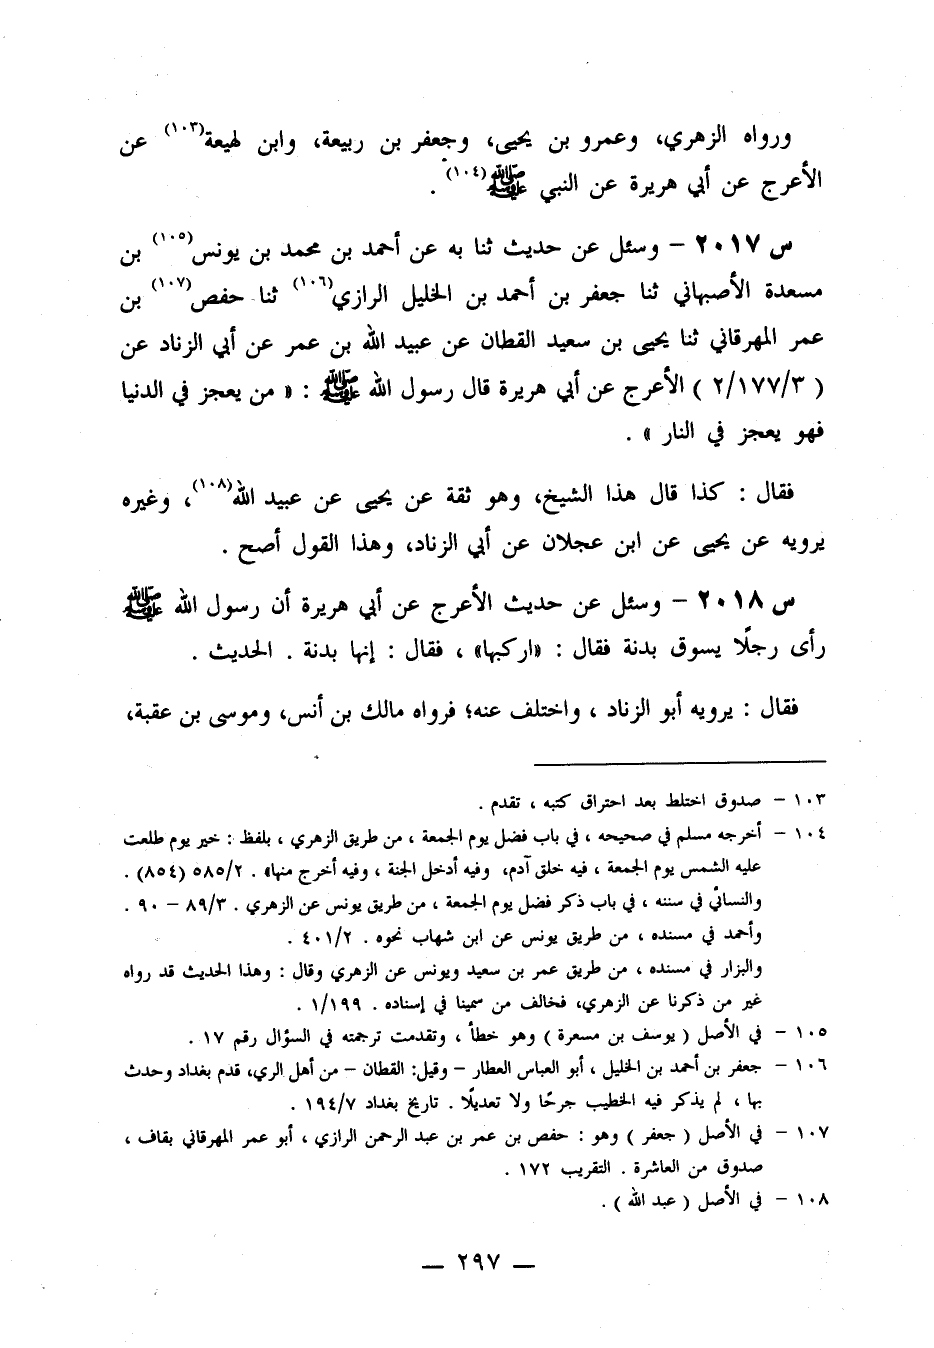 ورواه الزهري، وعمرو بن يحيى، وجعفر بن ربيعة، وابن لهيعة(١٠٣) عن
الأعرج عن أبي هريرة عن النبي ﷺ(١٠٤) .
س ٢٠١٧ – وسئل عن حديث ثنا به عن أحمد بن محمد بن يونس(١٠٥) بن
مسعدة الأصبهاني ثنا جعفر بن أحمد بن الخليل الرازي(١٠٦) ثنا حفص(١٠٧) بن
عمر المهرقاني ثنا يحيى بن سعيد القطان عن عبيد الله بن عمر عن أبي الزناد عن
( ٢/١٧٧/٣ ) الأعرج عن أبي هريرة قال رسول الله ﷺ : « من يعجز في الدنيا
فهو يعجز في النار » .
فقال : كذا قال هذا الشيخ، وهو ثقة عن يحيى عن عبيد الله(١٠٨)، وغيره
يرويه عن يحيى عن ابن عجلان عن أبي الزناد، وهذا القول أصح .
س ٢٠١٨ – وسئل عن حديث الأعرج عن أبي هريرة أن رسول الله ﷺ
رأى رجلًا يسوق بدنة فقال : «اركبها» ، فقال : إنها بدنة . الحديث .
فقال : يرويه أبو الزناد ، واختلف عنه؛ فرواه مالك بن أنس، وموسى بن عقبة،
١٠٣ – صدوق اختلط بعد احتراق كتبه ، تقدم .
١٠٤ – أخرجه مسلم في صحيحه ، في باب فضل يوم الجمعة ، من طريق الزهري ، بلفظ : خير يوم طلعت
عليه الشمس يوم الجمعة ، فيه خلق آدم، وفيه أدخل الجنة ، وفيه أخرج منها» . ٥٨٥/٢ (٨٥٤) .
والنسائي في سننه ، في باب ذكر فضل يوم الجمعة ، من طريق يونس عن الزهري . ٨٩/٣ – ٩٠ .
وأحمد في مسنده ، من طريق يونس عن ابن شهاب نحوه . ٤٠١/٢ .
والبزار في مسنده ، من طريق عمر بن سعيد ويونس عن الزهري وقال : وهذا الحديث قد رواه
غير من ذكرنا عن الزهري، فخالف من سمينا في إسناده . ١/١٩٩ .
١٠٥ – في الأصل ( يوسف بن مسعرة ) وهو خطأ ، وتقدمت ترجمته في السؤال رقم ١٧ .
١٠٦ – جعفر بن أحمد بن الخليل ، أبو العباس العطار – وقيل: القطان – من أهل الري، قدم بغداد وحدث
بها ، لم يذكر فيه الخطيب جرحًا ولا تعديلًا . تاريخ بغداد ١٩٤/٧ .
١٠٧ – في الأصل ( جعفر ) وهو : حفص بن عمر بن عبد الرحمن الرازي ، أبو عمر المهرقاني بقاف ،
صدوق من العاشرة . التقريب ١٧٢ .
١٠٨ – في الأصل ( عبد الله ) .
— ٢٩٧ —